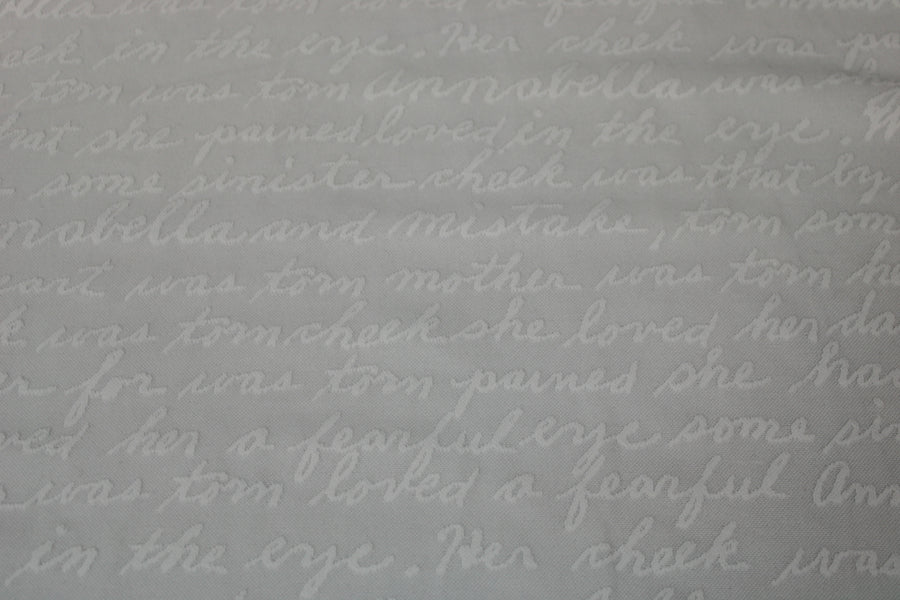 was torn loved a fearful
cheek in the eye. Her cheek was
torn was torn Annabella was
that she pained loved in the eye.
some sinister cheek was that by,
Annabella and mistake, torn som
eart was torn mother was torn he
k was torn cheek she loved her da
er for was torn pained she had
oved her a fearful eye some sin
was torn loved a fearful Ann
in the eye. Her cheek was